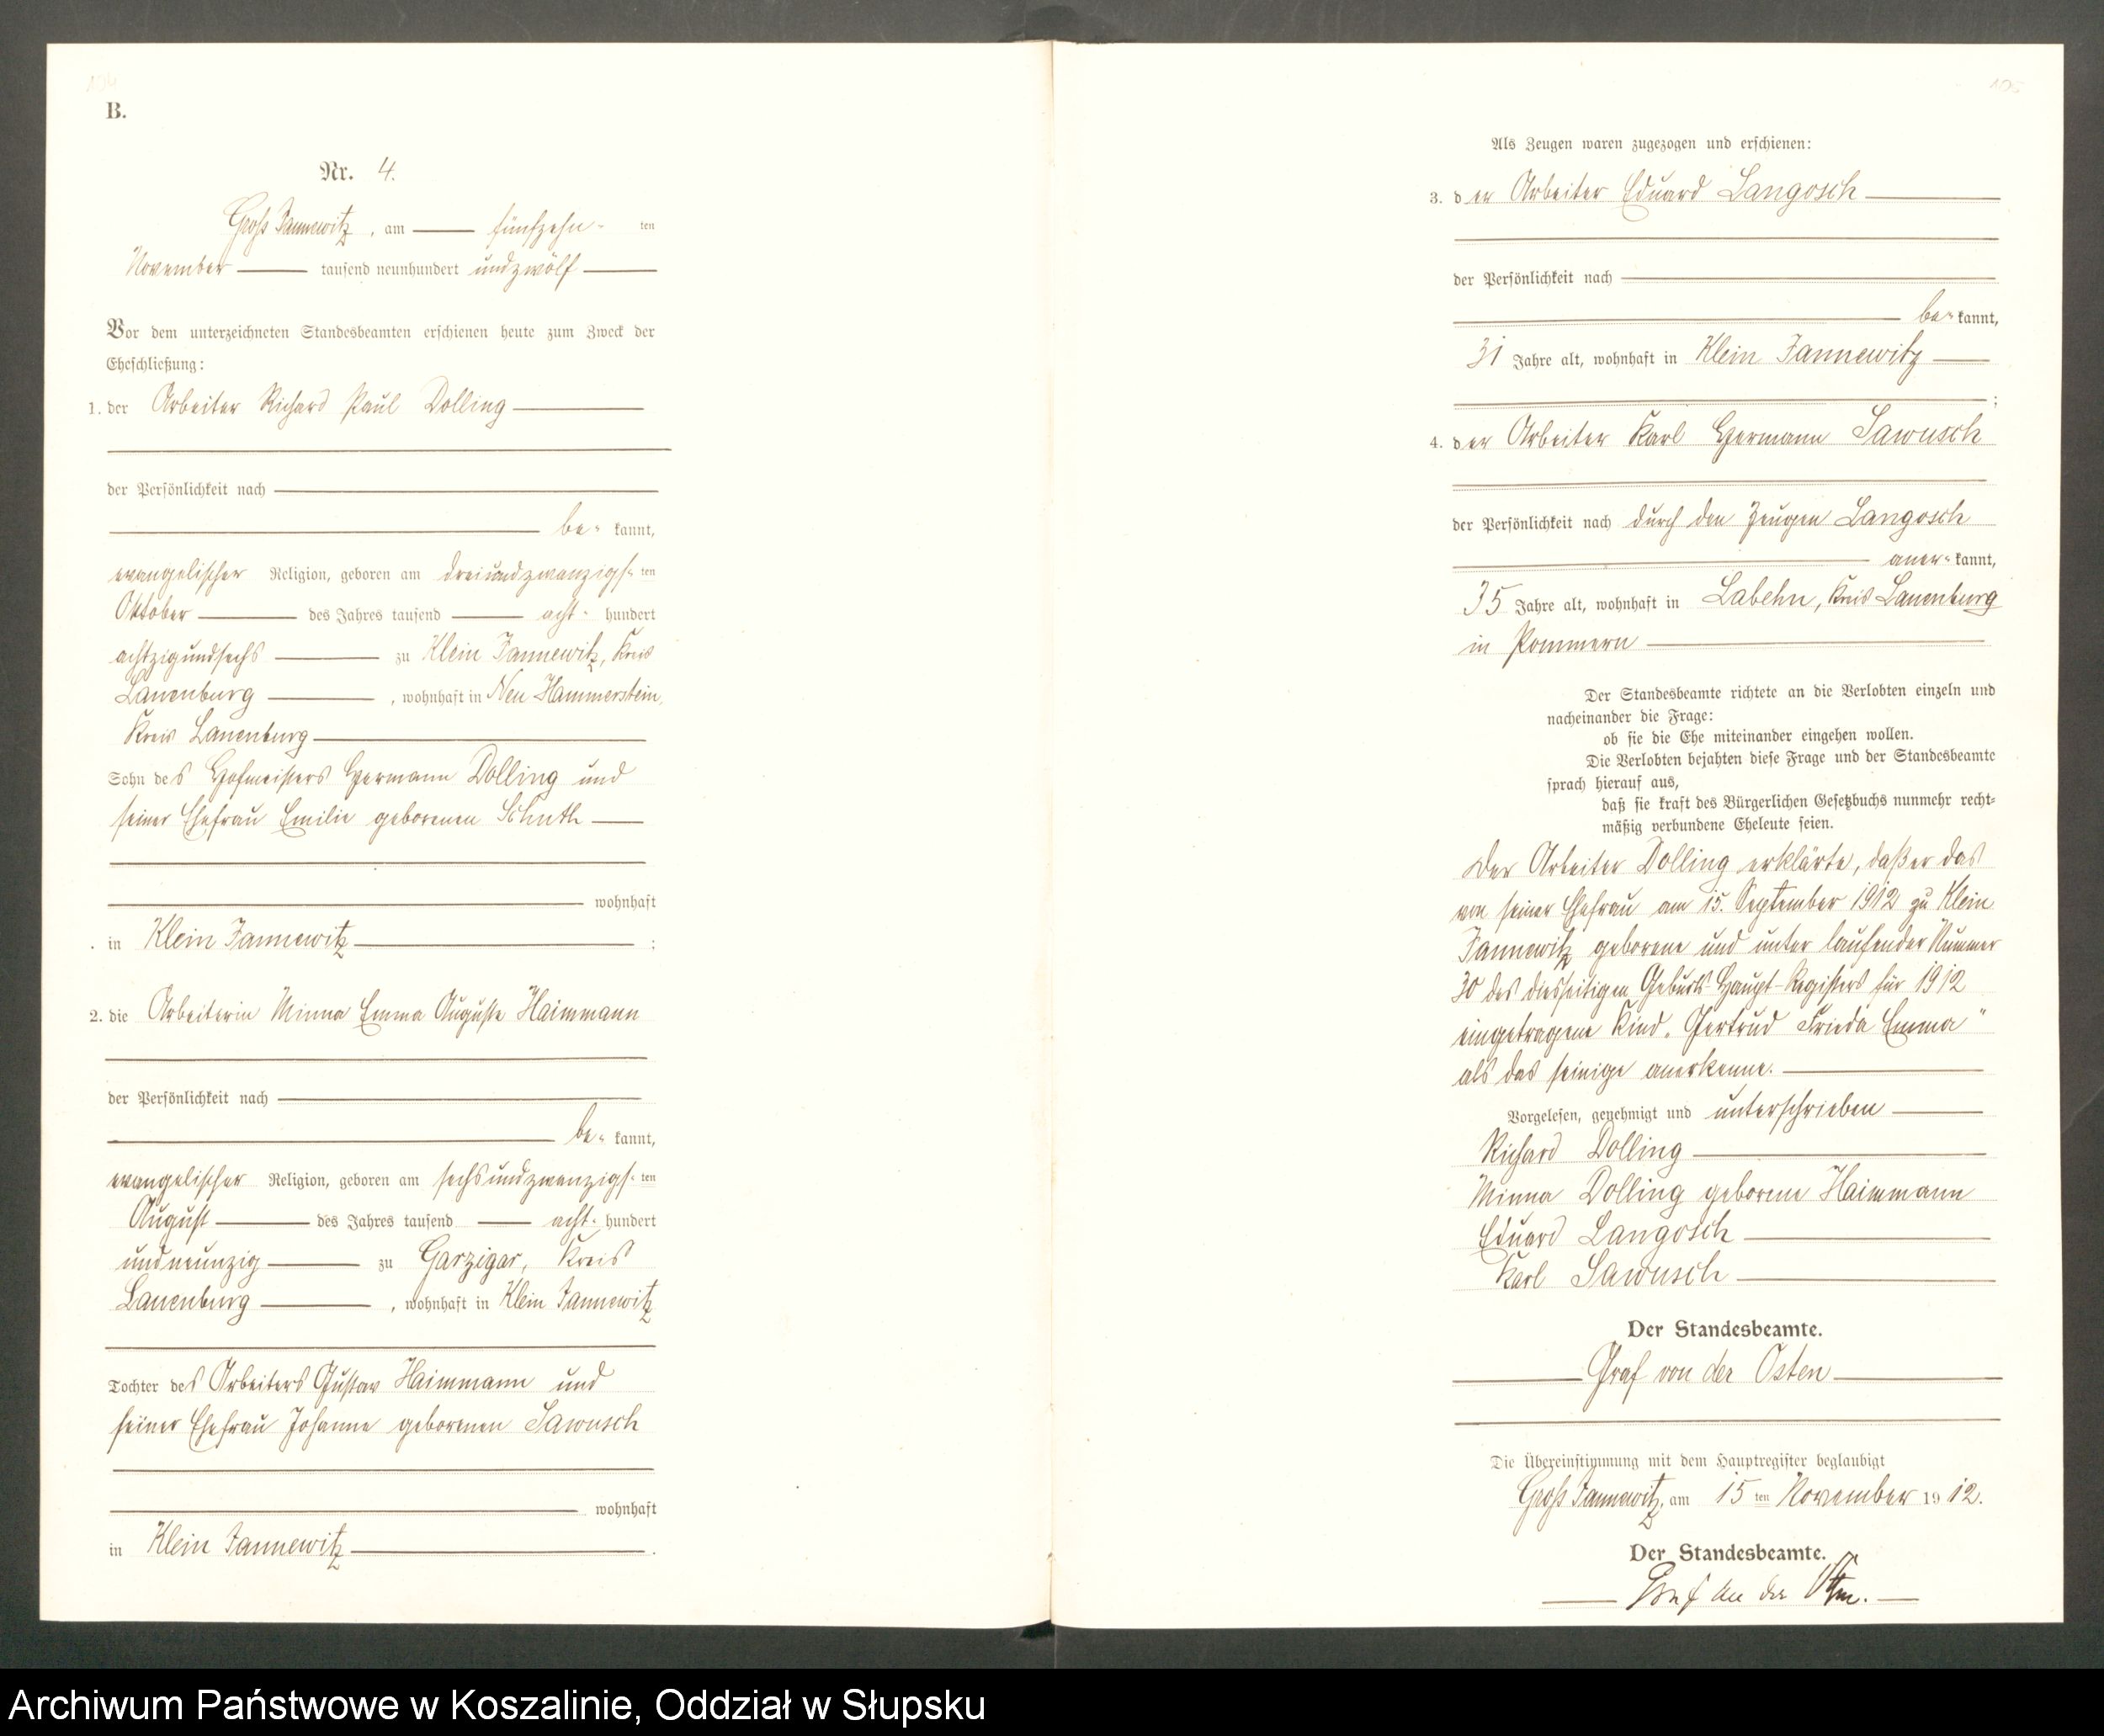 B.
Nr. 4.
Groß Jannewitz, am fünfzehn- ten
November tausend neunhundert undzwölf
Vor dem unterzeichneten Standesbeamten erschienen heute zum Zweck der
Eheschließung:
1. der Arbeiter Richard Paul Dolling
der Persönlichkeit nach
be- kannt,
evangelischer Religion, geboren am dreiundzwanzigs- ten
Oktober des Jahres tausend acht- hundert
achtzigundsechs zu Klein Jannewitz, Kreis
Lauenburg, wohnhaft in Neu Hammerstein,
Kreis Lauenburg
Sohn des Hofmeisters Hermann Dolling und
seiner Ehefrau Emilie geborenen Schuth
wohnhaft
in Klein Jannewitz ;
2. die Arbeiterin Minna Emma Auguste Haimmann
der Persönlichkeit nach
be- kannt,
evangelischer Religion, geboren am sechsundzwanzigs- ten
August des Jahres tausend acht- hundert
undneunzig zu Garzigar, Kreis
Lauenburg, wohnhaft in Klein Jannewitz
Tochter des Arbeiters Gustav Haimmann und
seiner Ehefrau Johanne geborenen Sawusch
wohnhaft
in Klein Jannewitz .
Als Zeugen waren zugezogen und erschienen:
3. der Arbeiter Eduard Langosch
der Persönlichkeit nach
be- kannt,
31 Jahre alt, wohnhaft in Klein Jannewitz
;
4. der Arbeiter Karl Hermann Sawusch
der Persönlichkeit nach durch den Zeugen Langosch
aner- kannt,
35 Jahre alt, wohnhaft in Labehn, Kreis Lauenburg
in Pommern
Der Standesbeamte richtete an die Verlobten einzeln und
nacheinander die Frage:
ob sie die Ehe miteinander eingehen wollen.
Die Verlobten bejahten diese Frage und der Standesbeamte
sprach hierauf aus,
daß sie kraft des Bürgerlichen Gesetzbuchs nunmehr recht-
mäßig verbundene Eheleute seien.
Der Arbeiter Dolling erklärte, daß er das
von seiner Ehefrau am 15. September 1912 zu Klein
Jannewitz geborene und unter laufender Nummer
30 des diesseitigen Geburts-Haupt-Registers für 1912
eingetragene Kind „Gertrud Frieda Emma"
als das seinige anerkenne.
Vorgelesen, genehmigt und unterschrieben
Richard Dolling
Minna Dolling geborene Haimmann
Eduard Langosch
Karl Sawusch
Der Standesbeamte.
Graf von der Osten
Die Übereinstimmung mit dem Hauptregister beglaubigt
Groß Jannewitz, am 15 ten November 1912.
Der Standesbeamte.
Graf von der Osten.
Archiwum Państwowe w Koszalinie, Oddział w Słupsku